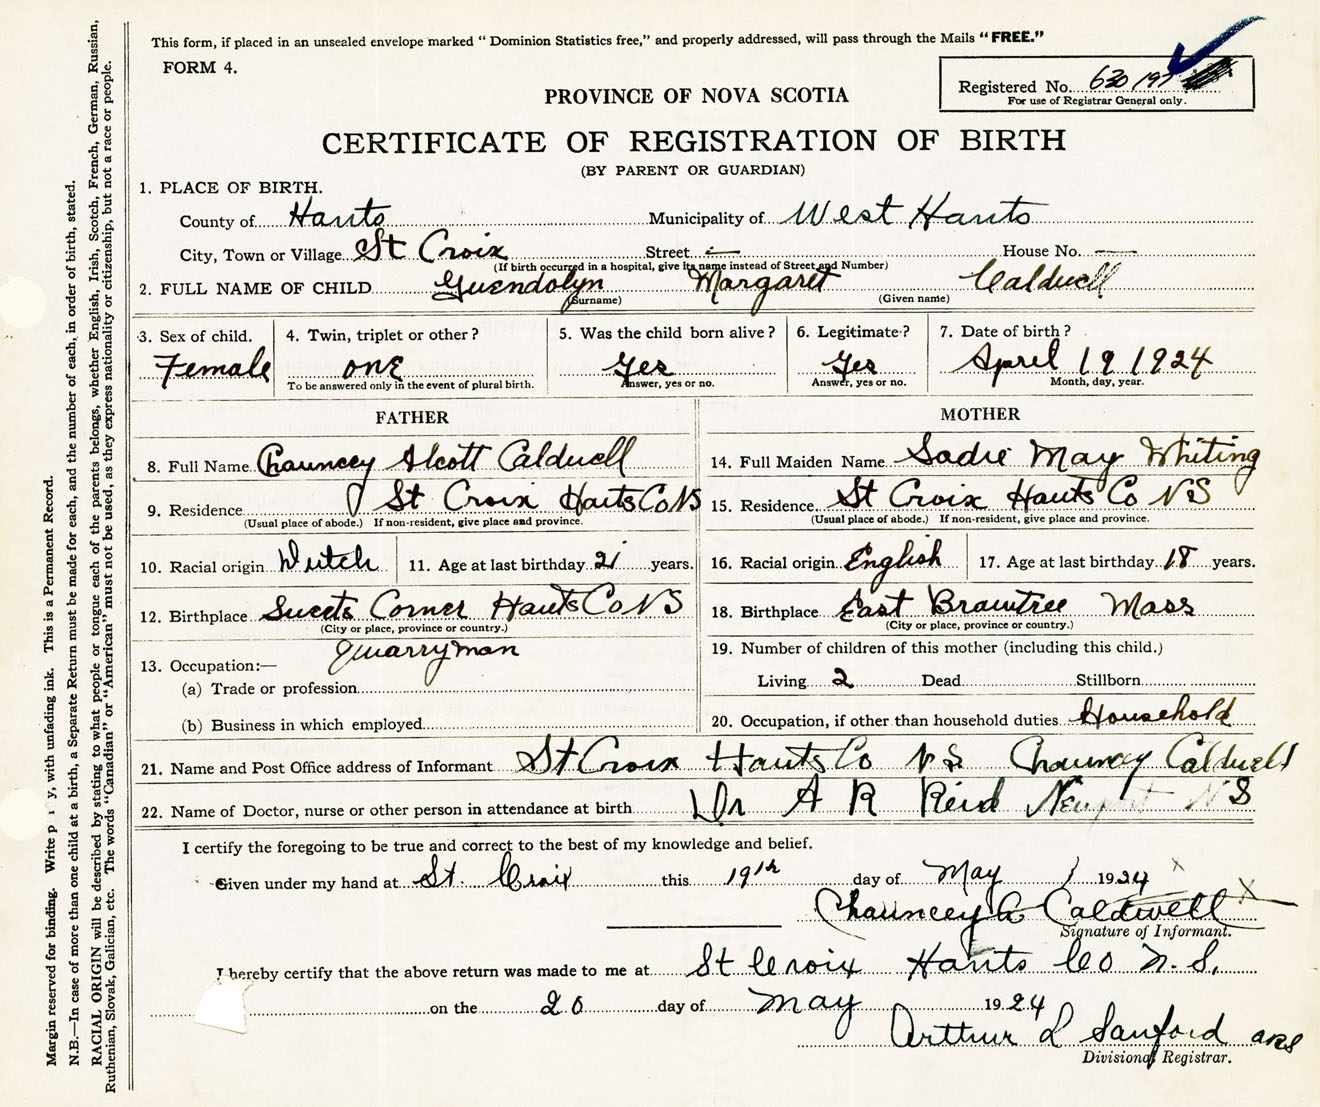 This form, if placed in an unsealed envelope marked “ Dominion Statistics free,” and properly addressed, will pass through the Mails “FREE.”
FORM 4.
Registered No. 630197
For use of Registrar General only.
PROVINCE OF NOVA SCOTIA
CERTIFICATE OF REGISTRATION OF BIRTH
(BY PARENT OR GUARDIAN)
1. PLACE OF BIRTH.
County of Hants Municipality of West Hants
City, Town or Village St Croix Street — House No. —
(If birth occurred in a hospital, give its name instead of Street and Number)
2. FULL NAME OF CHILD Guendolyn Margaret Caldwell
(Surname) (Given name)
3. Sex of child. 4. Twin, triplet or other? 5. Was the child born alive? 6. Legitimate? 7. Date of birth?
Female one Yes Yes April 19 1924
To be answered only in the event of plural birth. Answer, yes or no. Answer, yes or no. Month, day, year.
FATHER MOTHER
8. Full Name Chauncey Alcott Caldwell 14. Full Maiden Name Sadie May Whiting
9. Residence St Croix Hants Co NS 15. Residence St Croix Hants Co NS
(Usual place of abode.) If non-resident, give place and province. (Usual place of abode.) If non-resident, give place and province.
10. Racial origin Dutch 11. Age at last birthday 21 years. 16. Racial origin English 17. Age at last birthday 18 years.
12. Birthplace Sweets Corner Hants Co NS 18. Birthplace East Brawtree Mass
(City or place, province or country.) (City or place, province or country.)
13. Occupation:— Quarryman 19. Number of children of this mother (including this child.)
(a) Trade or profession Living 2 Dead Stillborn
(b) Business in which employed 20. Occupation, if other than household duties Household
21. Name and Post Office address of Informant St Croix Hants Co NS Chauncey Caldwell
22. Name of Doctor, nurse or other person in attendance at birth Dr A R Reid Newport N S
I certify the foregoing to be true and correct to the best of my knowledge and belief.
Given under my hand at St. Croix this 19th day of May 1924
Chauncey A Caldwell
Signature of Informant.
I hereby certify that the above return was made to me at St Croix Hants Co N.S.
on the 20 day of May 1924
Arthur L Sanford
Divisional Registrar.
Margin reserved for binding. Write y, with unfading ink. This is a Permanent Record.
N.B.—In case of more than one child at a birth, a Separate Return must be made for each, and the number of each, in order of birth, stated.
RACIAL ORIGIN will be described by stating to what people or tongue each of the parents belongs, whether English, Irish, Scotch, French, German, Russian,
Ruthenian, Slovak, Galician, etc. The words “Canadian” or “American” must not be used, as they express nationality or citizenship, but not a race or people.